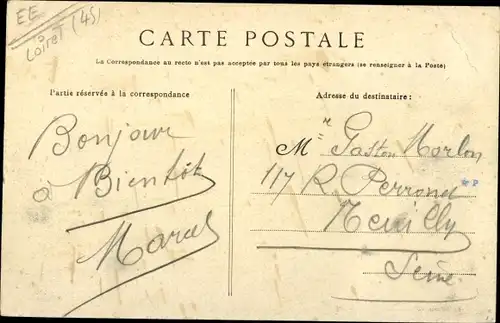 EE
Loiret (45)
CARTE POSTALE
La Correspondance au recto n'est pas acceptée par tous les pays étrangers (se renseigner à la Poste)
Partie réservée à la correspondance
Adresse du destinataire :
Bonjour
à Bientôt
Marcel
Mr Gaston Morlon
117 R. Perronet
Neuilly
Seine